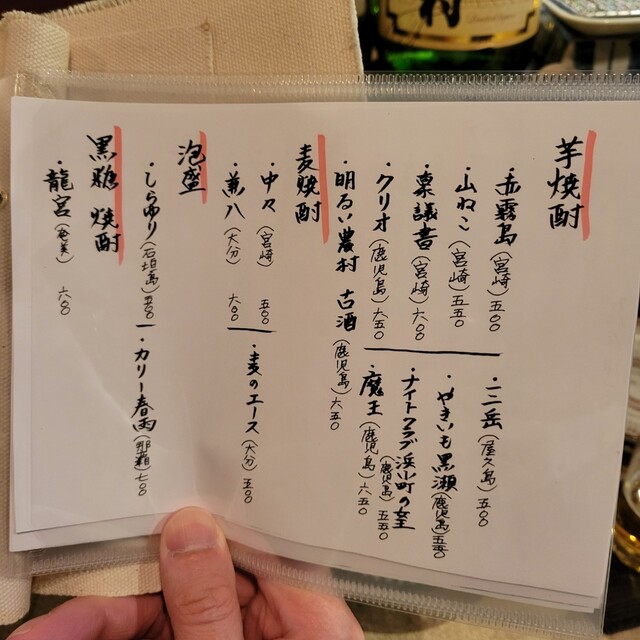 芋焼酎
・赤霧島（宮崎）五〇〇
・山ねこ（宮崎）五五〇
・稟議書（宮崎）六〇〇
・クリオ（鹿児島）六五〇
・明るい農村 古酒（鹿児島）六五〇
・三岳（屋久島）五〇〇
・やきいも黒瀬（鹿児島）五五〇
・ナイトクラブ浜小町の室（鹿児島）五五〇
・魔王（鹿児島）六五〇
麦焼酎
・中々（宮崎）五〇〇
・兼八（大分）六〇〇
・麦のエース（大分）五〇〇
泡盛
・しらゆり（石垣島）五〇〇
・カリー春雨（那覇）七〇〇
黒糖焼酎
・龍宮（奄美）六〇〇